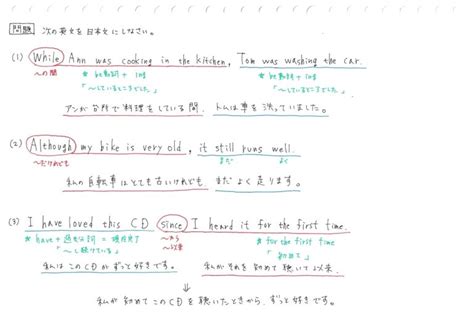 問題 次の英文を日本文にしなさい。
(1) While Ann was cooking in the kitchen, Tom was washing the car.
〜の間 * be動詞 + ing * be動詞 + ing
「〜しているところでした」 「〜しているところでした」
アンが台所で料理をしている間、トムは車を洗っていました。
(2) Although my bike is very old, it still runs well.
〜だけれども まだ よく
私の自転車はとても古いけれども、まだよく走ります。
(3) I have loved this CD since I heard it for the first time.
* have + 過去分詞 = 現在完了 〜から * for the first time
「〜し続けている」 〜以来 「初めて」
私はこのCDがずっと好きです。 私がそれを初めて聴いて以来
⇓
私が初めてこのCDを聴いたときから、ずっと好きです。